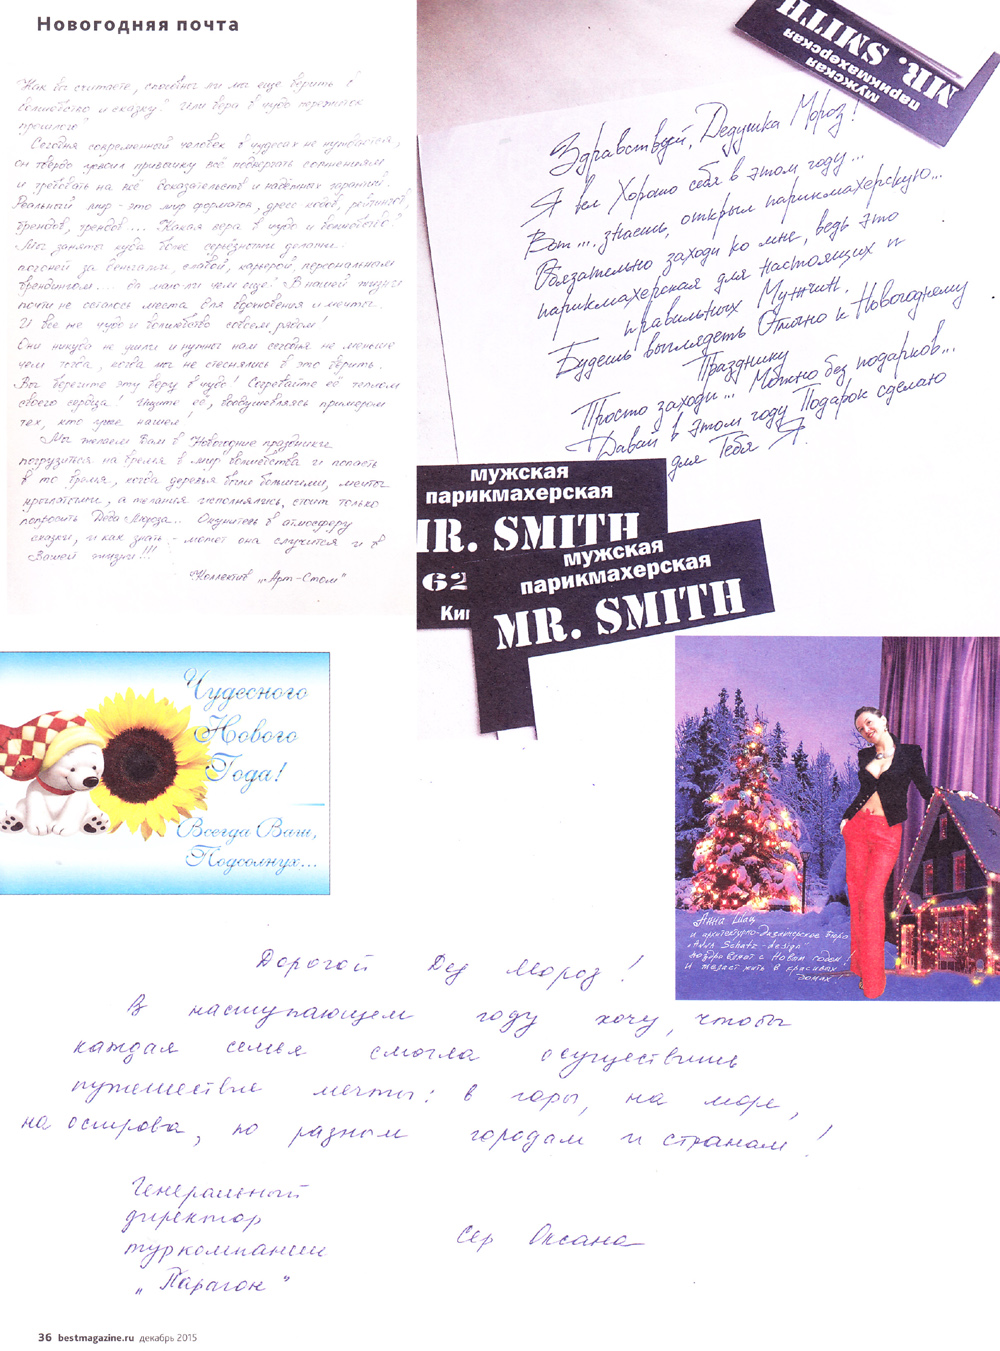 Новогодняя почта
Как вы считаете, способны ли мы еще верить в
волшебство и сказку? Или вера в чудо пережиток
прошлого?
Сегодня современный человек в чудесах не нуждается,
он твердо усвоил привычку всё подвергать сомнениям
и требовать на всё доказательств и надёжных гарантий.
Реальный мир - это мир форматов, дресс кодов, рейтингов,
брендов, трендов.... Какая вера в чудо и волшебство?
Мы заняты куда более серьёзными делами:
погоней за деньгами, славой, карьерой, персональным
брендингом.... да мало ли чем еще! В нашей жизни
почти не осталось места для вдохновения и мечты.
И все же чудо и волшебство совсем рядом!
Они никуда не ушли и нужны нам сегодня не меньше
чем тогда, когда мы не стеснялись в это верить.
Вы берегите эту веру в чудо! Согревайте её теплом
своего сердца! Ищите её, воодушевляясь примером
тех, кто уже нашел!
Мы желаем Вам в Новогодние праздники
погрузиться на время в мир волшебства и попасть
в то время, когда деревья были большими, мечты
крылатыми, а желания исполнялись, стоит только
попросить Деда Мороза... Окунитесь в атмосферу
сказки, и как знать - может она случится и в
Вашей жизни!!!
Коллектив „Арт-Стом"
мужская
парикмахерская
MR. SMITH
Здравствуй, Дедушка Мороз!
Я вел Хорошо себя в этом году...
Вот... знаешь, открыл парикмахерскую...
Обязательно заходи ко мне, ведь это
парикмахерская для настоящих и
правильных Мужчин.
Будешь выглядеть Отлично к Новогоднему
Празднику
Просто заходи... Можно без подарков...
Давай в этом году Подарок сделаю
для Тебя Я.
мужская
парикмахерская
MR. SMITH
62
Ки
мужская
парикмахерская
MR. SMITH
Чудесного
Нового
Года!
Всегда Ваш,
Подсолнух...
Анна Шац
и архитектурно-дизайнерское бюро
„Anna Schatz-design"
поздравляют с Новым годом!
и желают жить в красивых
домах!
Дорогой Дед Мороз!
В наступающем году хочу, чтобы
каждая семья смогла осуществить
путешествие мечты: в горы, на море,
на острова, по разным городам и странам!
Генеральный
директор
туркомпании
„Парагон"
Сер Оксана
36 bestmagazine.ru декабрь 2015